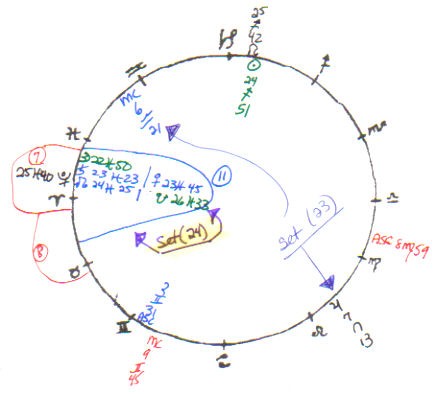 25
♐
42
☊
♑
☉
24
♐
51
♐
♒
MC
6♑21
♓
⑦
25♓40 ♀
☽ 22♓50
♄ 23♓23 / ♀ 23♓45
☊ 24♓25 / ☿ 26♓33
⑪
♈
⑧
♏
♎
set (23)
set (24)
ASC 8♍59
♍
♉
♃
7
♌
13
♌
2
♊
31
ASC
♊
MC
9
♊
45
♋